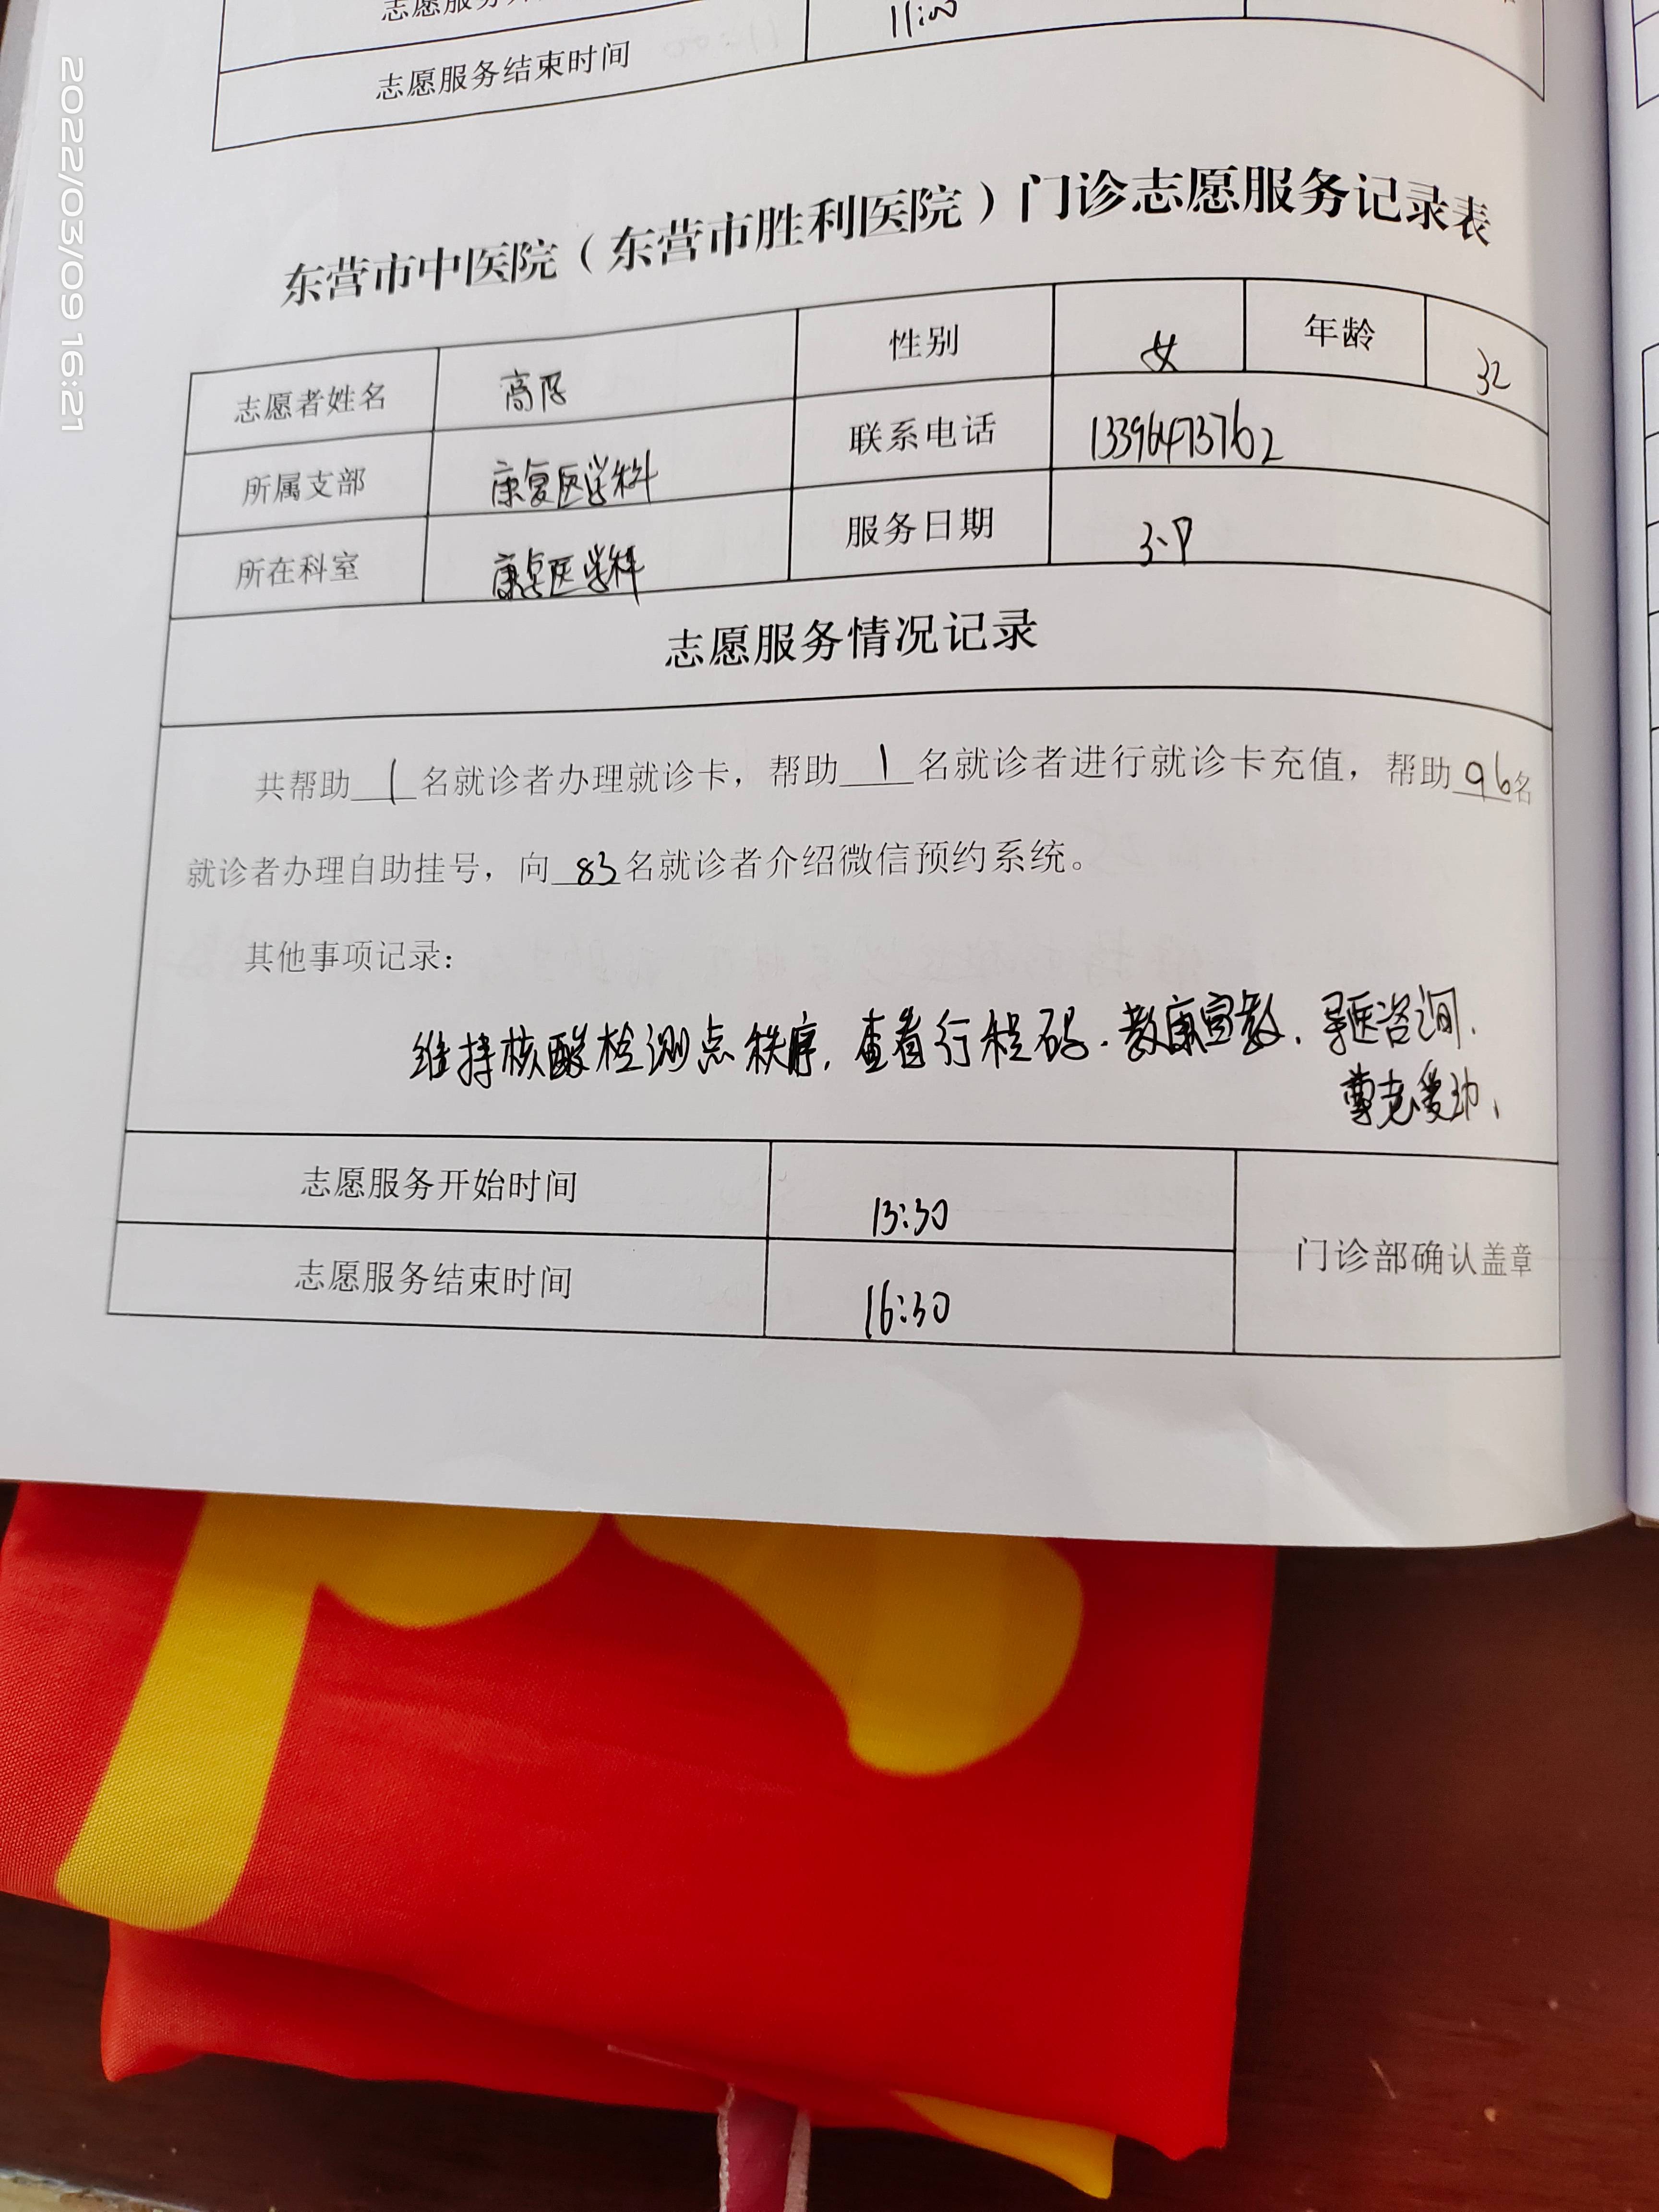 志愿服务
11:00
志愿服务结束时间
东营市中医院（东营市胜利医院）门诊志愿服务记录表
志愿者姓名 高 性别 女 年龄 32
所属支部 康复医学科 联系电话 13396473762
所在科室 康复医学科 服务日期 3.9
志愿服务情况记录
共帮助 1 名就诊者办理就诊卡，帮助 1 名就诊者进行就诊卡充值，帮助 96 名
就诊者办理自助挂号，向 83 名就诊者介绍微信预约系统。
其他事项记录：
维持核酸检测点秩序，查看行程码、康宣教，导医咨询、
尊老爱幼、
志愿服务开始时间 13:30
门诊部确认盖章
志愿服务结束时间 16:30
2022/03/09 16:21